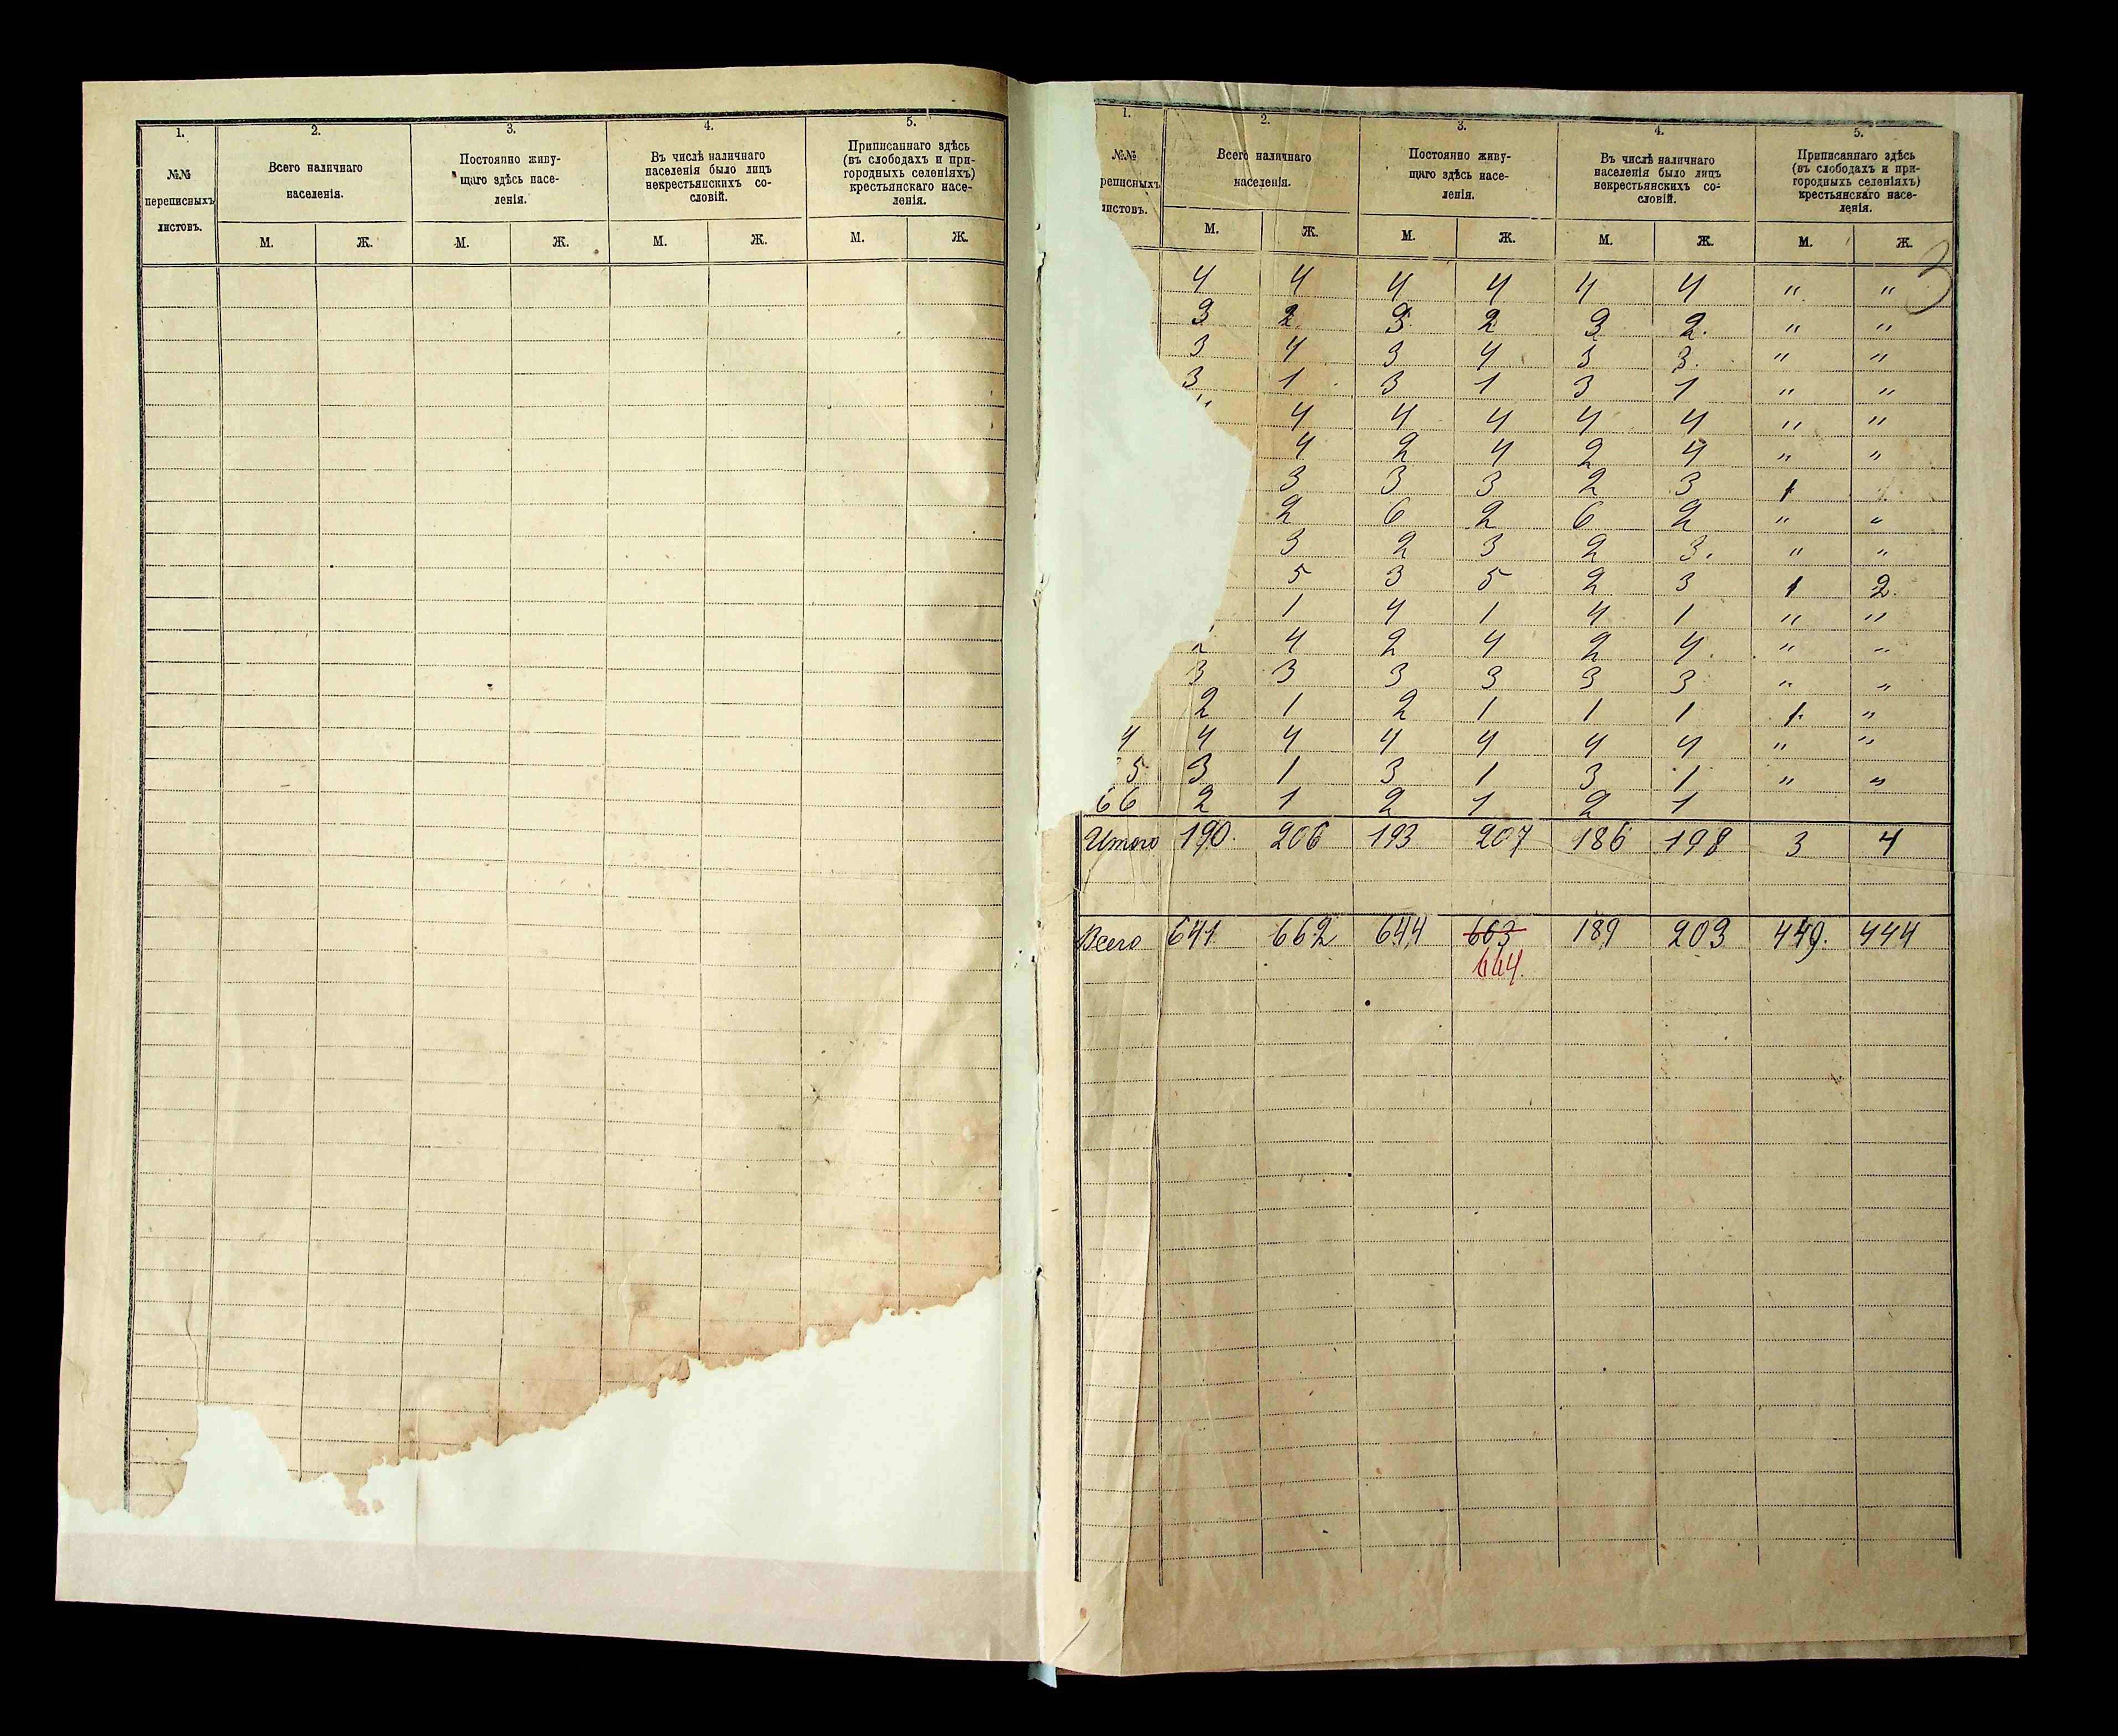 1. 2. 3. 4. 5.
№№ переписныхъ листовъ.
Всего наличнаго
населенія.
Постоянно живу-
щаго здѣсь насе-
ленія.
Въ числѣ наличнаго
населенія было лицъ
некрестьянскихъ со-
словій.
Приписаннаго здѣсь
(въ слободахъ и при-
городныхъ селеніяхъ)
крестьянскаго насе-
ленія.
М. Ж. М. Ж. М. Ж. М. Ж.
1. 2. 3. 4. 5.
№№
реписныхъ
листовъ.
Всего наличнаго
населенія.
Постоянно живу-
щаго здѣсь насе-
ленія.
Въ числѣ наличнаго
населенія было лицъ
некрестьянскихъ со-
словій.
Приписаннаго здѣсь
(въ слободахъ и при-
городныхъ селеніяхъ)
крестьянскаго насе-
ленія.
М. Ж. М. Ж. М. Ж. М. Ж.
3
4 4 4 4 4 4 " "
3 2. 3. 2 3 2. " "
3 4 3 4 3 3. " "
3 1 3 1 3 1 " "
4 4 4 4 4 " "
4 2 4 2 4 " "
3 3 3 2 3 1
2 6 2 6 2 " "
3 2 3 2 3. " "
5 3 5 2 3 1 2.
1 4 1 4 1 " "
4 2 4 2 4. " "
3 3 3 3 3 3 " "
2 1 2 1 1 1 1. "
4 4 4 4 4 4 4 " "
5 3 1 3 1 3 1 " "
66 2 1 2 1 2 1
Итого 190. 206 193 207 186 198 3 4
Всего 641 662 644 663 189 203 449. 444
664.